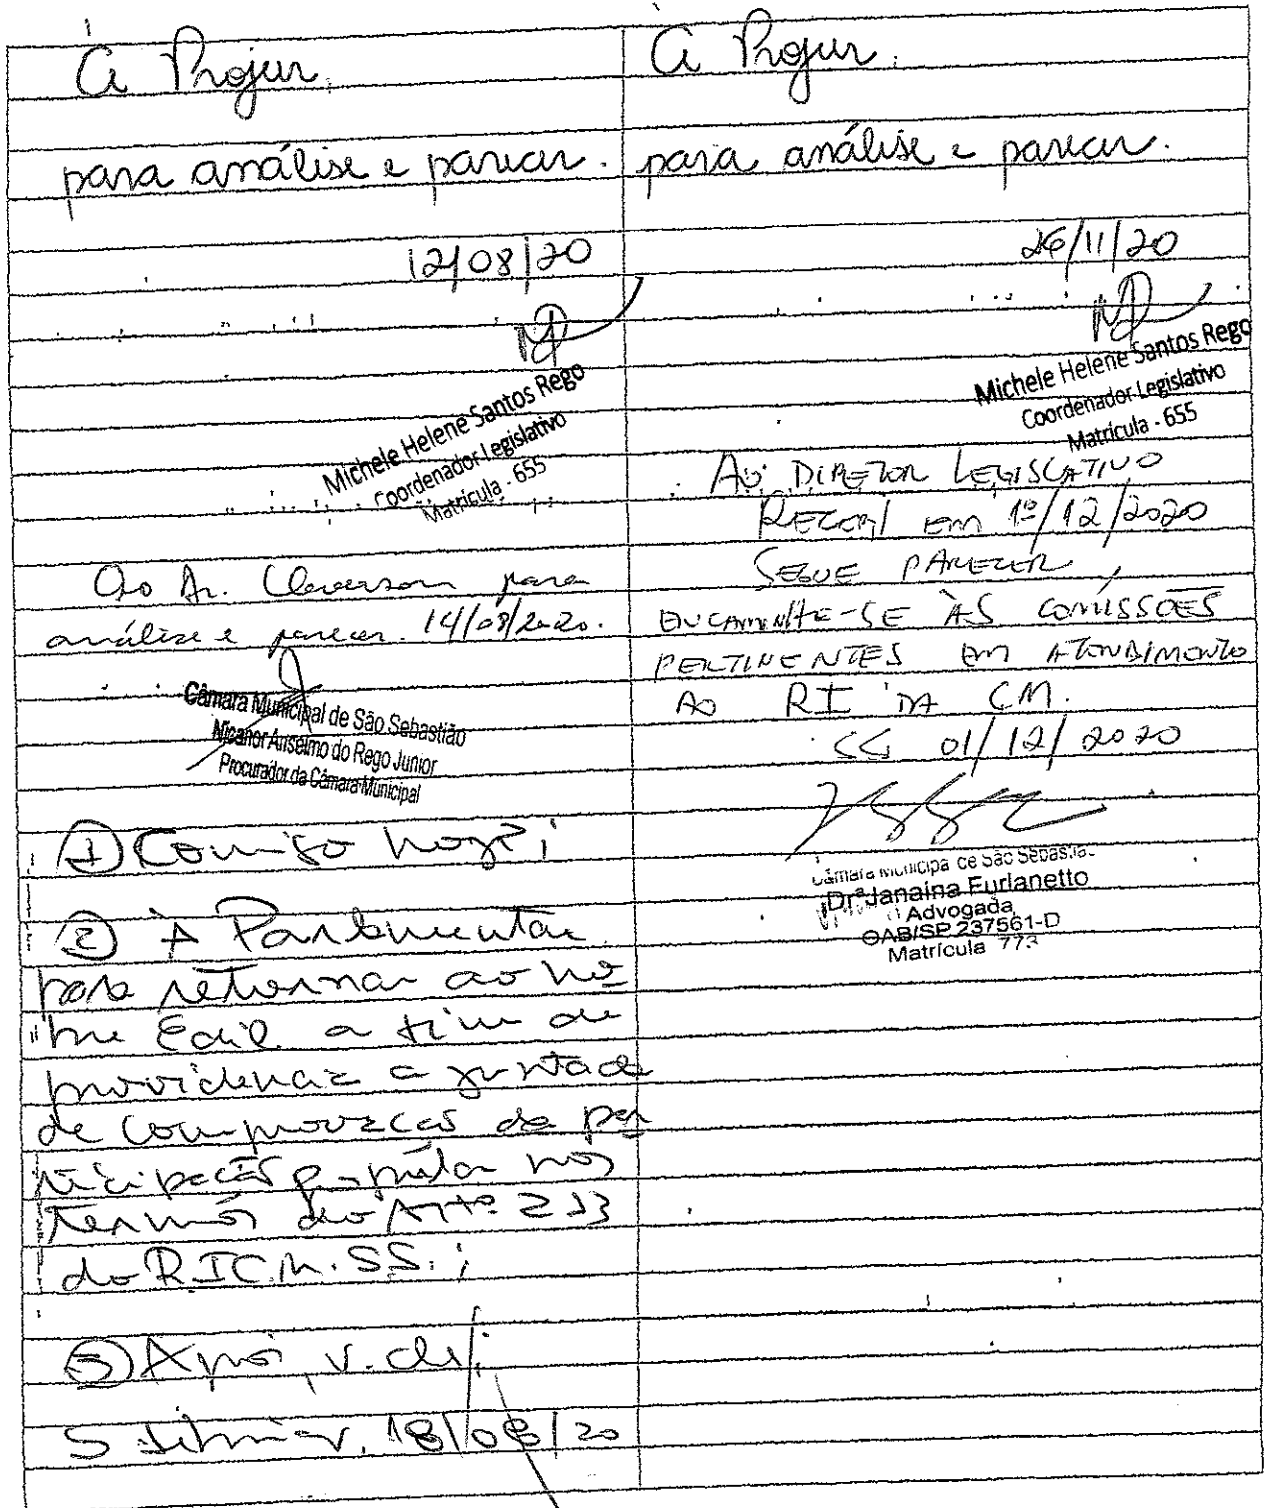 À Projur.
para análise e parecer.
12/08/20
Michele Helene Santos Rego
Coordenador Legislativo
Matrícula - 655
Ao Dr. Cleverson para
análise e parecer. 14/08/2020.
Câmara Municipal de São Sebastião
Nicanor Anselmo do Rego Junior
Procurador da Câmara Municipal
① Comigo hoje;
② À Parlamentar
para retornar ao no-
bre Edil a fim de
providenciar a juntada
de comprovação da par
ticipação popular nos
termos do Artº 233
do R.I.C.M.S.S.;
③ Após, v. cls;
S. 18/08/20
À Projur.
para análise e parecer.
26/11/20
Michele Helene Santos Rego
Coordenador Legislativo
Matrícula - 655
AO DIRETOR LEGISLATIVO
RECEBI EM 1º/12/2020
SEGUE PARECER,
ENCAMINHE-SE ÀS COMISSÕES
PERTINENTES EM ATENDIMENTO
AO RI DA CM.
SS 01/12/2020
Câmara Municipal de São Sebastião
Dr.ª Janaina Furlanetto
Advogada
OAB/SP 237561-D
Matrícula 773